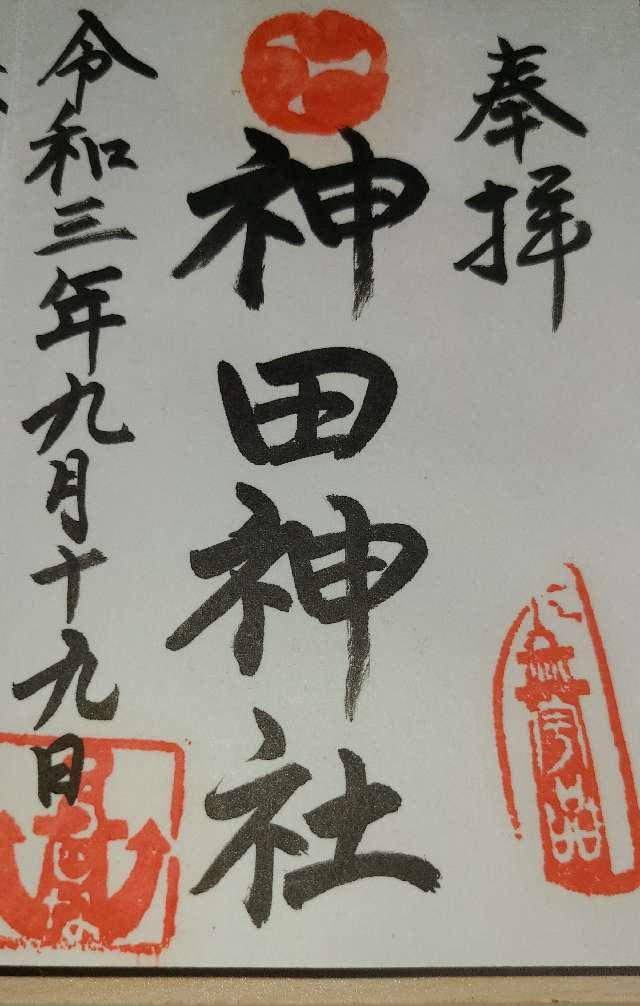 奉拝
神田神社
令和三年九月十九日